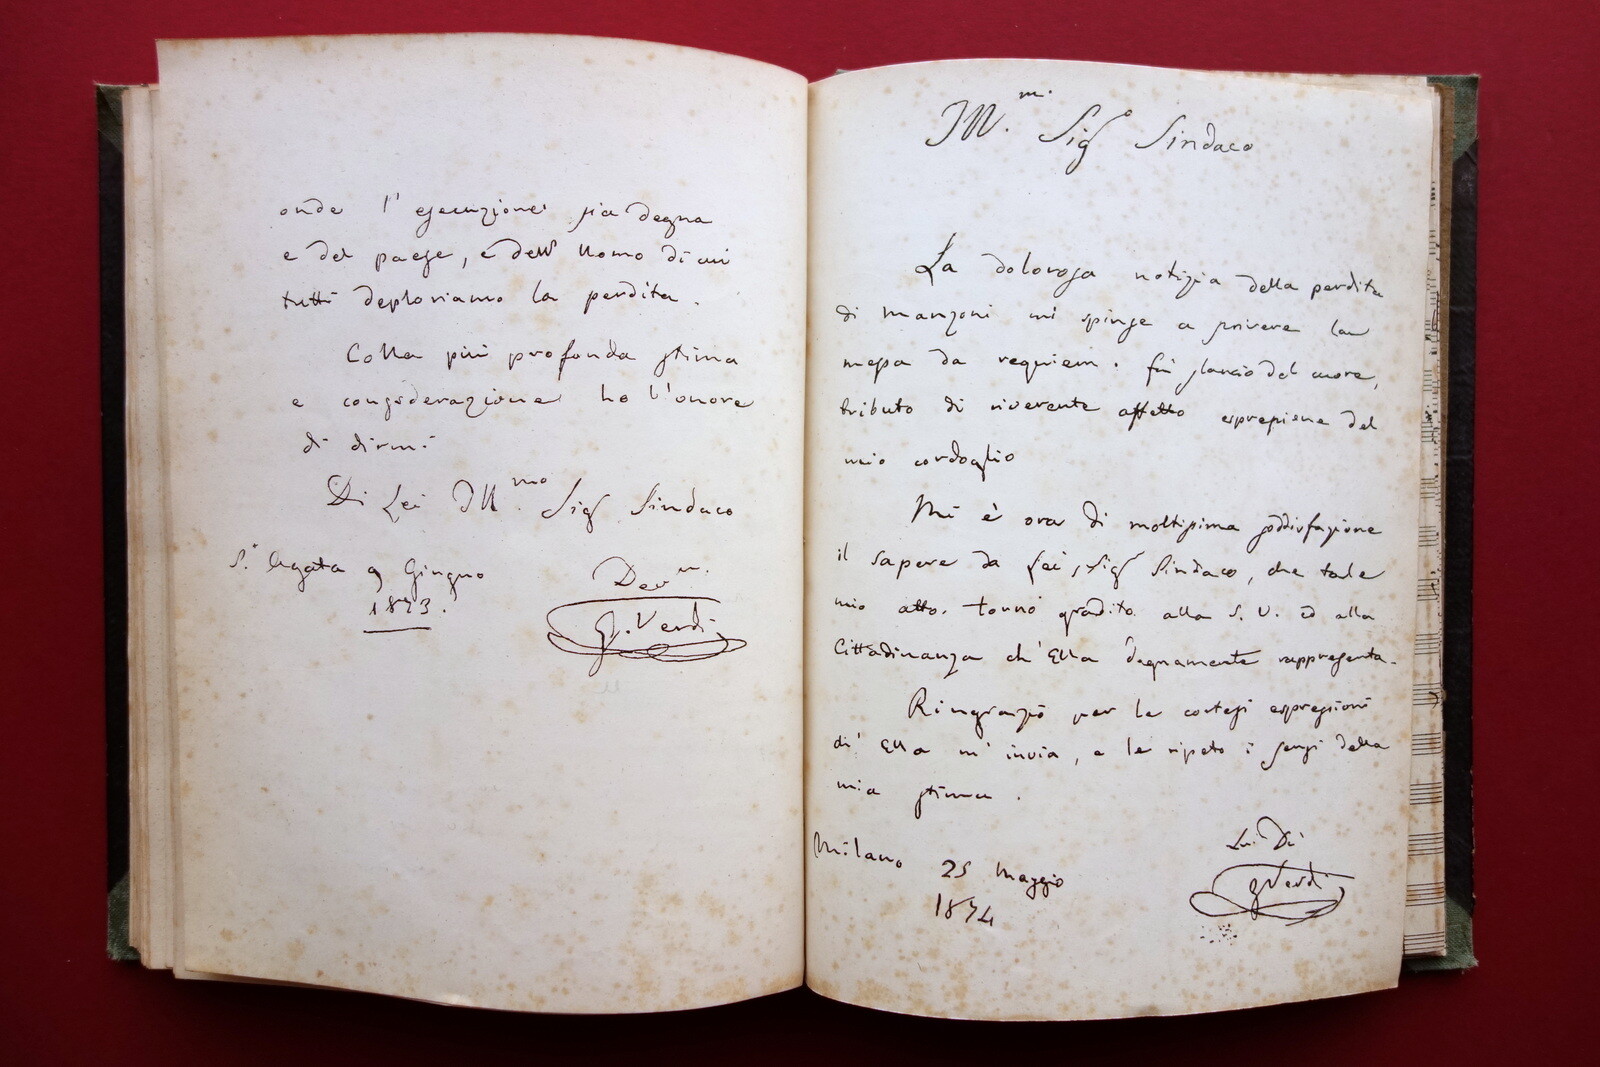 onde l'esecuzione sia degna
e del paese, e dell'Uomo di cui
tutti deploriamo la perdita.
Colla più profonda stima
e considerazione ho l'onore
di dirmi
Di Lei Ill.mo Sig Sindaco
S. Agata 9 Giugno
1873.
Dev.m.
G. Verdi
Ill.m. Sig Sindaco
La dolorosa notizia della perdita
di Manzoni mi spinse a scrivere la
messa da requiem. Fu slancio del cuore,
tributo di riverente affetto espressione del
mio cordoglio
Mi è ora di moltissima soddisfazione
il sapere da Lei, Sig Sindaco, che tale
mio atto tornò gradito alla S. V. ed alla
Cittadinanza ch'Ella degnamente rappresenta.
Ringrazio per le cortesi espressioni
ch'Ella m'invia, e le ripeto i sensi della
mia stima.
Milano 25 Maggio
1874
Di
G Verdi